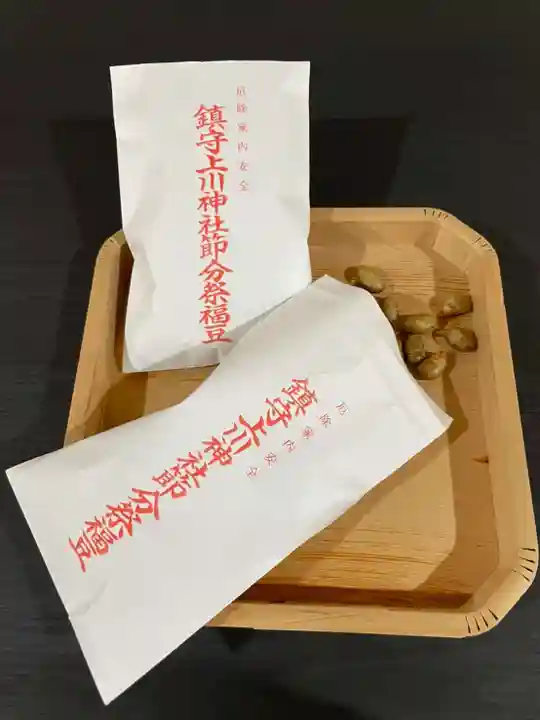 厄除家内安全
鎮守上川神社節分祭福豆
厄除家内安全
鎮守上川神社節分祭福豆